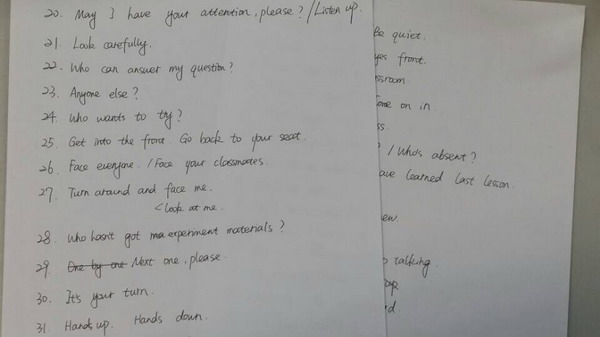 20. May I have your attention, please? / Listen up.
21. Look carefully.
22. Who can answer my question?
23. Anyone else?
24. Who wants to try?
25. Get into the front. Go back to your seat.
26. Face everyone. / Face your classmates.
27. Turn around and face me.
< look at me.
28. Who hasn't got experiment materials?
29. One by one Next one, please.
30. It's your turn.
31. Hands up. Hands down.
Be quiet.
front.
on in.
/ Who's absent?
learned last lesson.
talking.